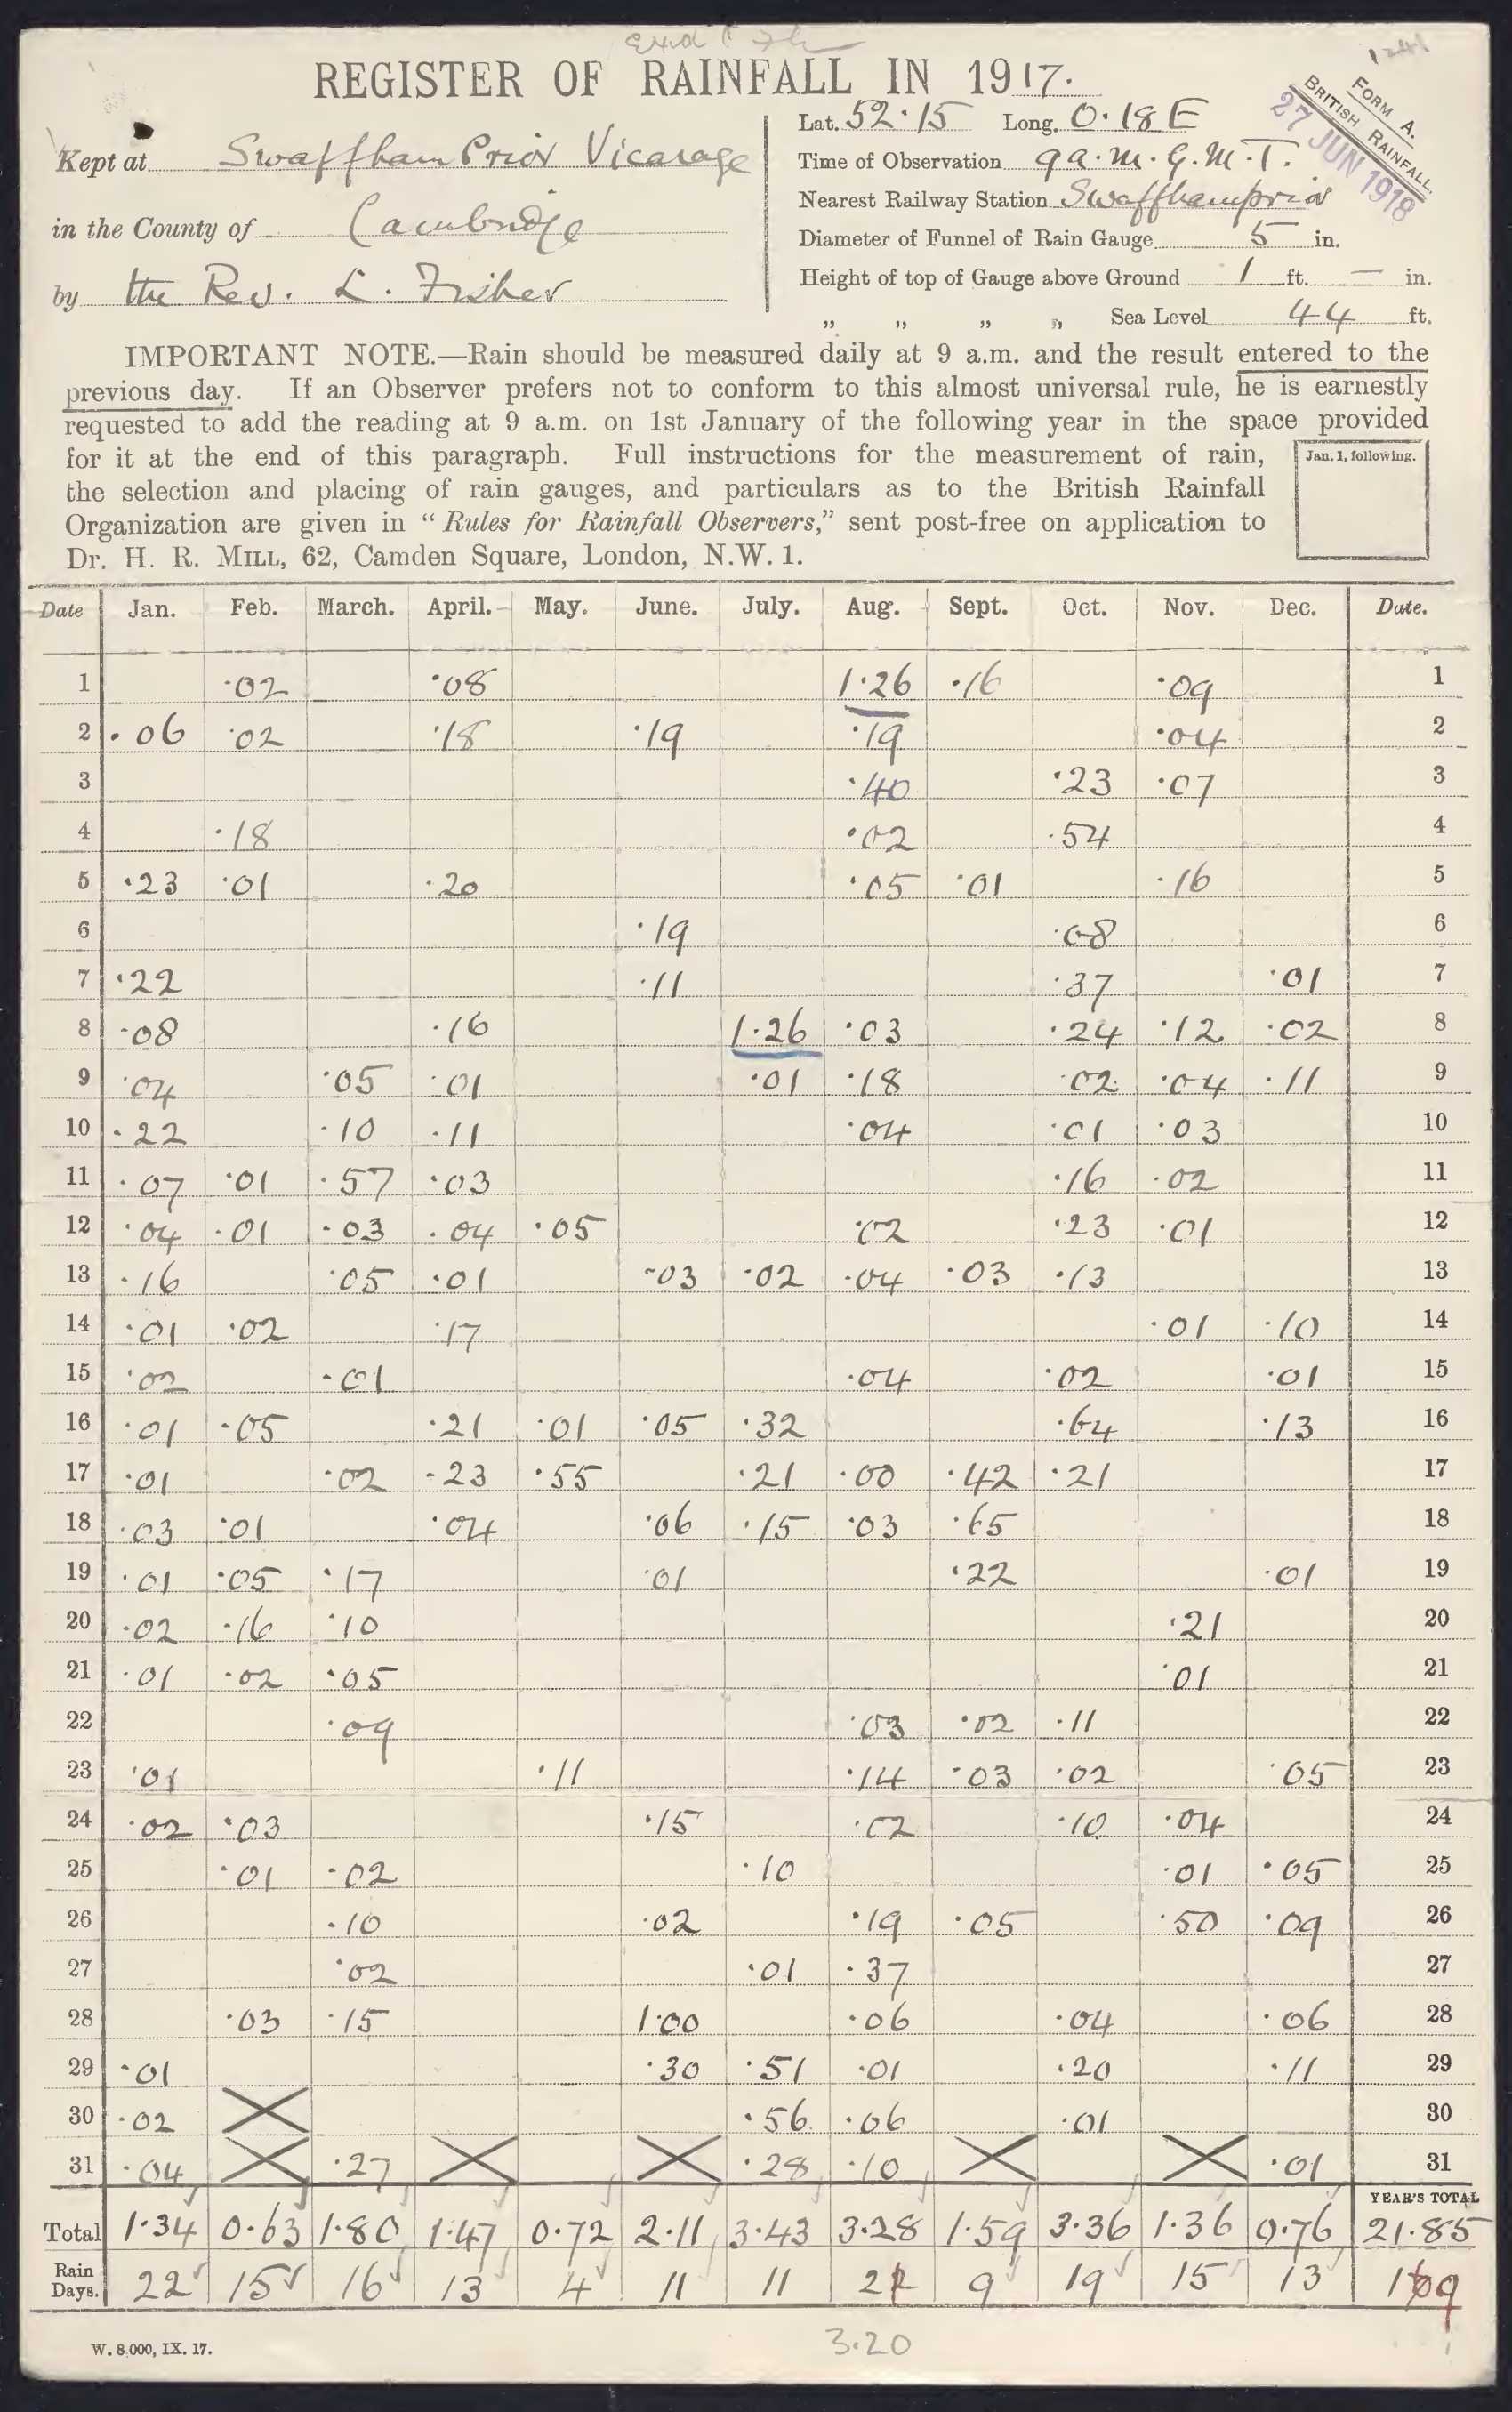 REGISTER OF RAINFALL IN 1917.
FORM A.
BRITISH RAINFALL.
27 JUN 1918
Kept at Swaffham Prior Vicarage
in the County of Cambridge
by the Rev. L. Fisher
Lat. 52·15 Long. 0·18 E
Time of Observation 9 a.m. G.M.T.
Nearest Railway Station Swaffhamprior
Diameter of Funnel of Rain Gauge 5 in.
Height of top of Gauge above Ground 1 ft. — in.
„ „ „ „ Sea Level 44 ft.
IMPORTANT NOTE.—Rain should be measured daily at 9 a.m. and the result entered to the
previous day. If an Observer prefers not to conform to this almost universal rule, he is earnestly
requested to add the reading at 9 a.m. on 1st January of the following year in the space provided
for it at the end of this paragraph. Full instructions for the measurement of rain,
the selection and placing of rain gauges, and particulars as to the British Rainfall
Organization are given in “Rules for Rainfall Observers,” sent post-free on application to
Dr. H. R. MILL, 62, Camden Square, London, N.W. 1.
Jan. 1, following.
Date Jan. Feb. March. April. May. June. July. Aug. Sept. Oct. Nov. Dec. Date.
1 ·02 ·08 1·26 ·16 ·09 1
2 ·06 ·02 ·18 ·19 ·19 ·04 2
3 ·40 ·23 ·07 3
4 ·18 ·02 ·54 4
5 ·23 ·01 ·20 ·05 ·01 ·16 5
6 ·19 ·08 6
7 ·22 ·11 ·37 ·01 7
8 ·08 ·16 1·26 ·03 ·24 ·12 ·02 8
9 ·04 ·05 ·01 ·01 ·18 ·02 ·04 ·11 9
10 ·22 ·10 ·11 ·04 ·01 ·03 10
11 ·07 ·01 ·57 ·03 ·16 ·02 11
12 ·04 ·01 ·03 ·04 ·05 ·02 ·23 ·01 12
13 ·16 ·05 ·01 ·03 ·02 ·04 ·03 ·13 13
14 ·01 ·02 ·17 ·01 ·10 14
15 ·02 ·01 ·04 ·02 ·01 15
16 ·01 ·05 ·21 ·01 ·05 ·32 ·64 ·13 16
17 ·01 ·02 ·23 ·55 ·21 ·00 ·42 ·21 17
18 ·03 ·01 ·04 ·06 ·15 ·03 ·65 18
19 ·01 ·05 ·17 ·01 ·22 ·01 19
20 ·02 ·16 ·10 ·21 20
21 ·01 ·02 ·05 ·01 21
22 ·09 ·03 ·02 ·11 22
23 ·01 ·11 ·14 ·03 ·02 ·05 23
24 ·02 ·03 ·15 ·02 ·10 ·04 24
25 ·01 ·02 ·10 ·01 ·05 25
26 ·10 ·02 ·19 ·05 ·50 ·09 26
27 ·02 ·01 ·37 27
28 ·03 ·15 1·00 ·06 ·04 ·06 28
29 ·01 ·30 ·51 ·01 ·20 ·11 29
30 ·02 ·56 ·06 ·01 30
31 ·04 ·27 ·28 ·10 ·01 31
YEAR'S TOTAL
Total 1·34 0·63 1·80 1·47 0·72 2·11 3·43 3·28 1·59 3·36 1·36 0·76 21·85
Rain Days. 22 15 16 13 4 11 11 9 19 15 13 169
W. 8,000, IX. 17.
3·20